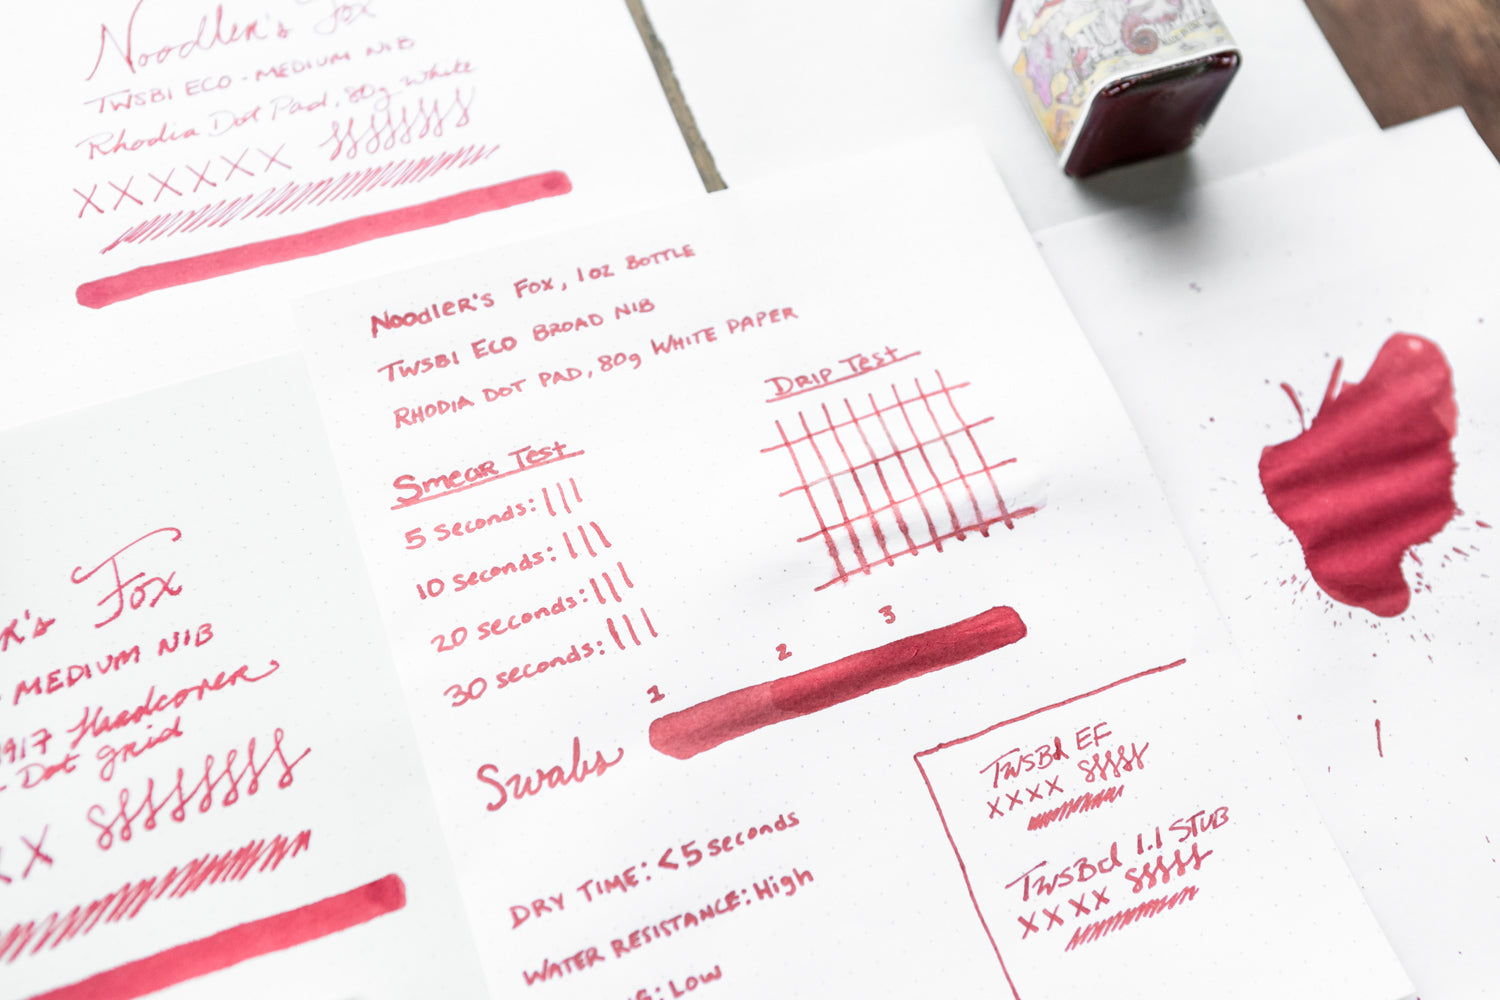 Noodler's Fox
TWSBI ECO - MEDIUM NIB
Rhodia Dot Pad, 80g White
XXXXXX
Noodler's Fox, 1oz Bottle
TWSBI Eco Broad Nib
Rhodia Dot Pad, 80g White Paper
Smear Test
5 seconds: |||
10 seconds: |||
20 seconds: |||
30 seconds: |||
Drip Test
1 2 3
Swabs
Dry Time: <5 seconds
Water Resistance: High
Low
TWSBI EF
XXXX
TWSBI 1.1 STUB
XXXX
Fox
MEDIUM NIB
1917 Hardcover
Dot Grid